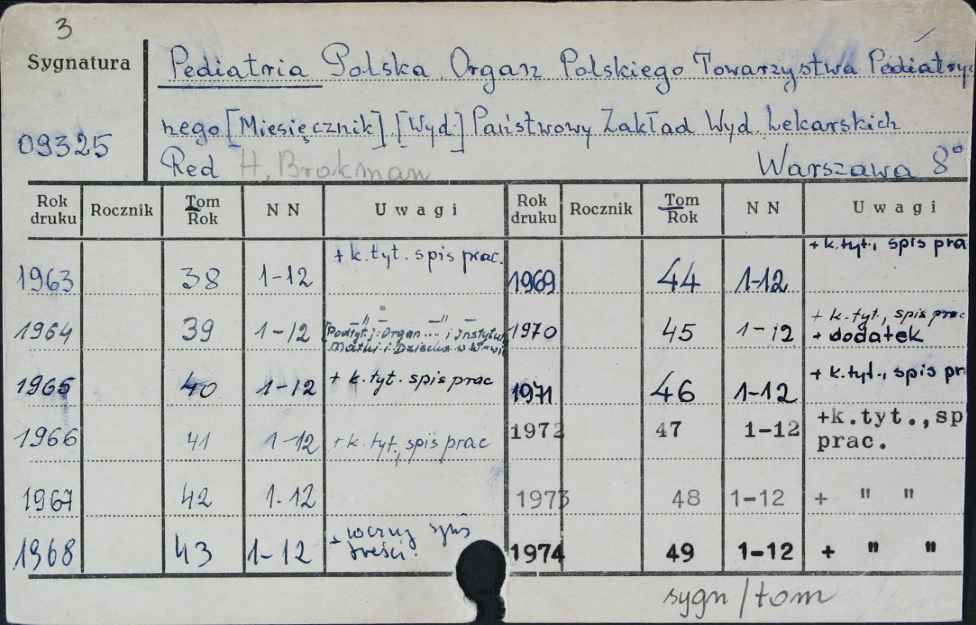 3
Sygnatura
Pediatria Polska. Organ Polskiego Towarzystwa Pediatry
nego [Miesięcznik] [Wyd.] Państwowy Zakład Wyd. Lekarskich
09325
Red H. Brokman Warszawa 8°
Rok druku Rocznik Tom Rok NN Uwagi Rok druku Rocznik Tom Rok NN Uwagi
1963 38 1-12 + k. tyt. spis prac. 1969 44 1-12 + k. tyt., spis pra
1964 39 1-12 [Podtyt.]: Organ ... i Instytu Matki i Dziecka w W-wi 1970 45 1-12 + k. tyt., spis prac + dodatek
1965 40 1-12 + k. tyt. spis prac 1971 46 1-12 + k. tyt., spis pr
1966 41 1-12 + k. tyt., spis prac 1972 47 1-12 +k.tyt.,sp prac.
1967 42 1-12 1973 48 1-12 + " "
1968 43 1-12 + roczny spis treści. 1974 49 1-12 + " "
sygn/tom